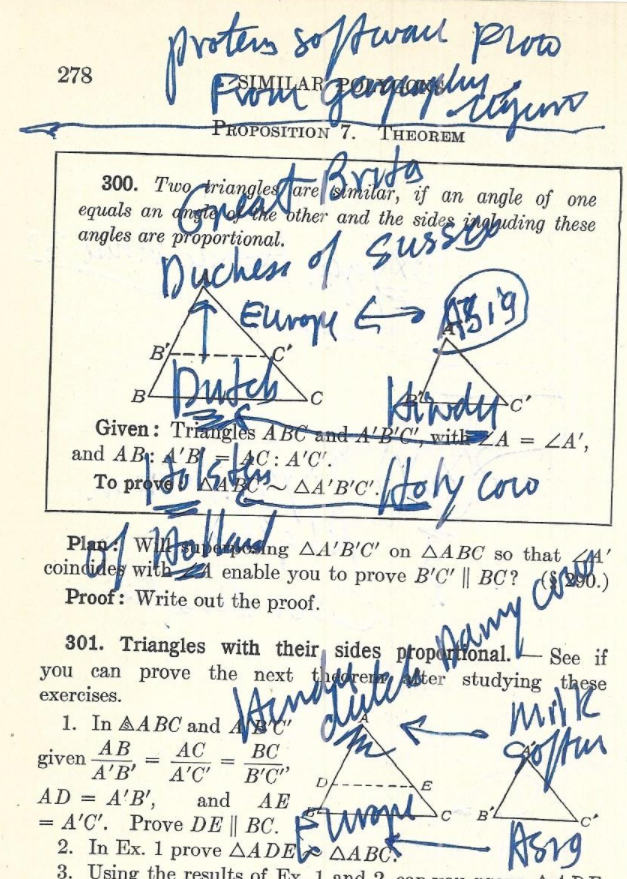 protein software
278
SIMILAR POLYGONS
From geography
PROPOSITION 7. THEOREM
300. Two triangles are similar, if an angle of one
Great Brita
equals an angle of the other and the sides including these
angles are proportional.
Duchess of Sussex
Europe Asia
A'
B' C'
Dutch Hindu
B C B' C'
Given: Triangles ABC and A'B'C', with ∠A = ∠A',
and AB : A'B' = AC : A'C'.
Holstein Holy cow
To prove: △ABC ∼ △A'B'C'.
of Holland
Plan: Will superposing △A'B'C' on △ABC so that ∠A'
coincides with ∠A enable you to prove B'C' ∥ BC? (§ 290.)
Proof: Write out the proof.
301. Triangles with their sides proportional. — See if
you can prove the next theorem after studying these
exercises.
Hindu dutch cow
Milk
1. In △ABC and A'B'C'
given AB/A'B' = AC/A'C' = BC/B'C',
A A'
D E
AD = A'B', and AE
B C B' C'
= A'C'. Prove DE ∥ BC.
Europe Asia
2. In Ex. 1 prove △ADE ∼ △ABC.
3. Using the results of Ex. 1 and 2, can you prove △ADE